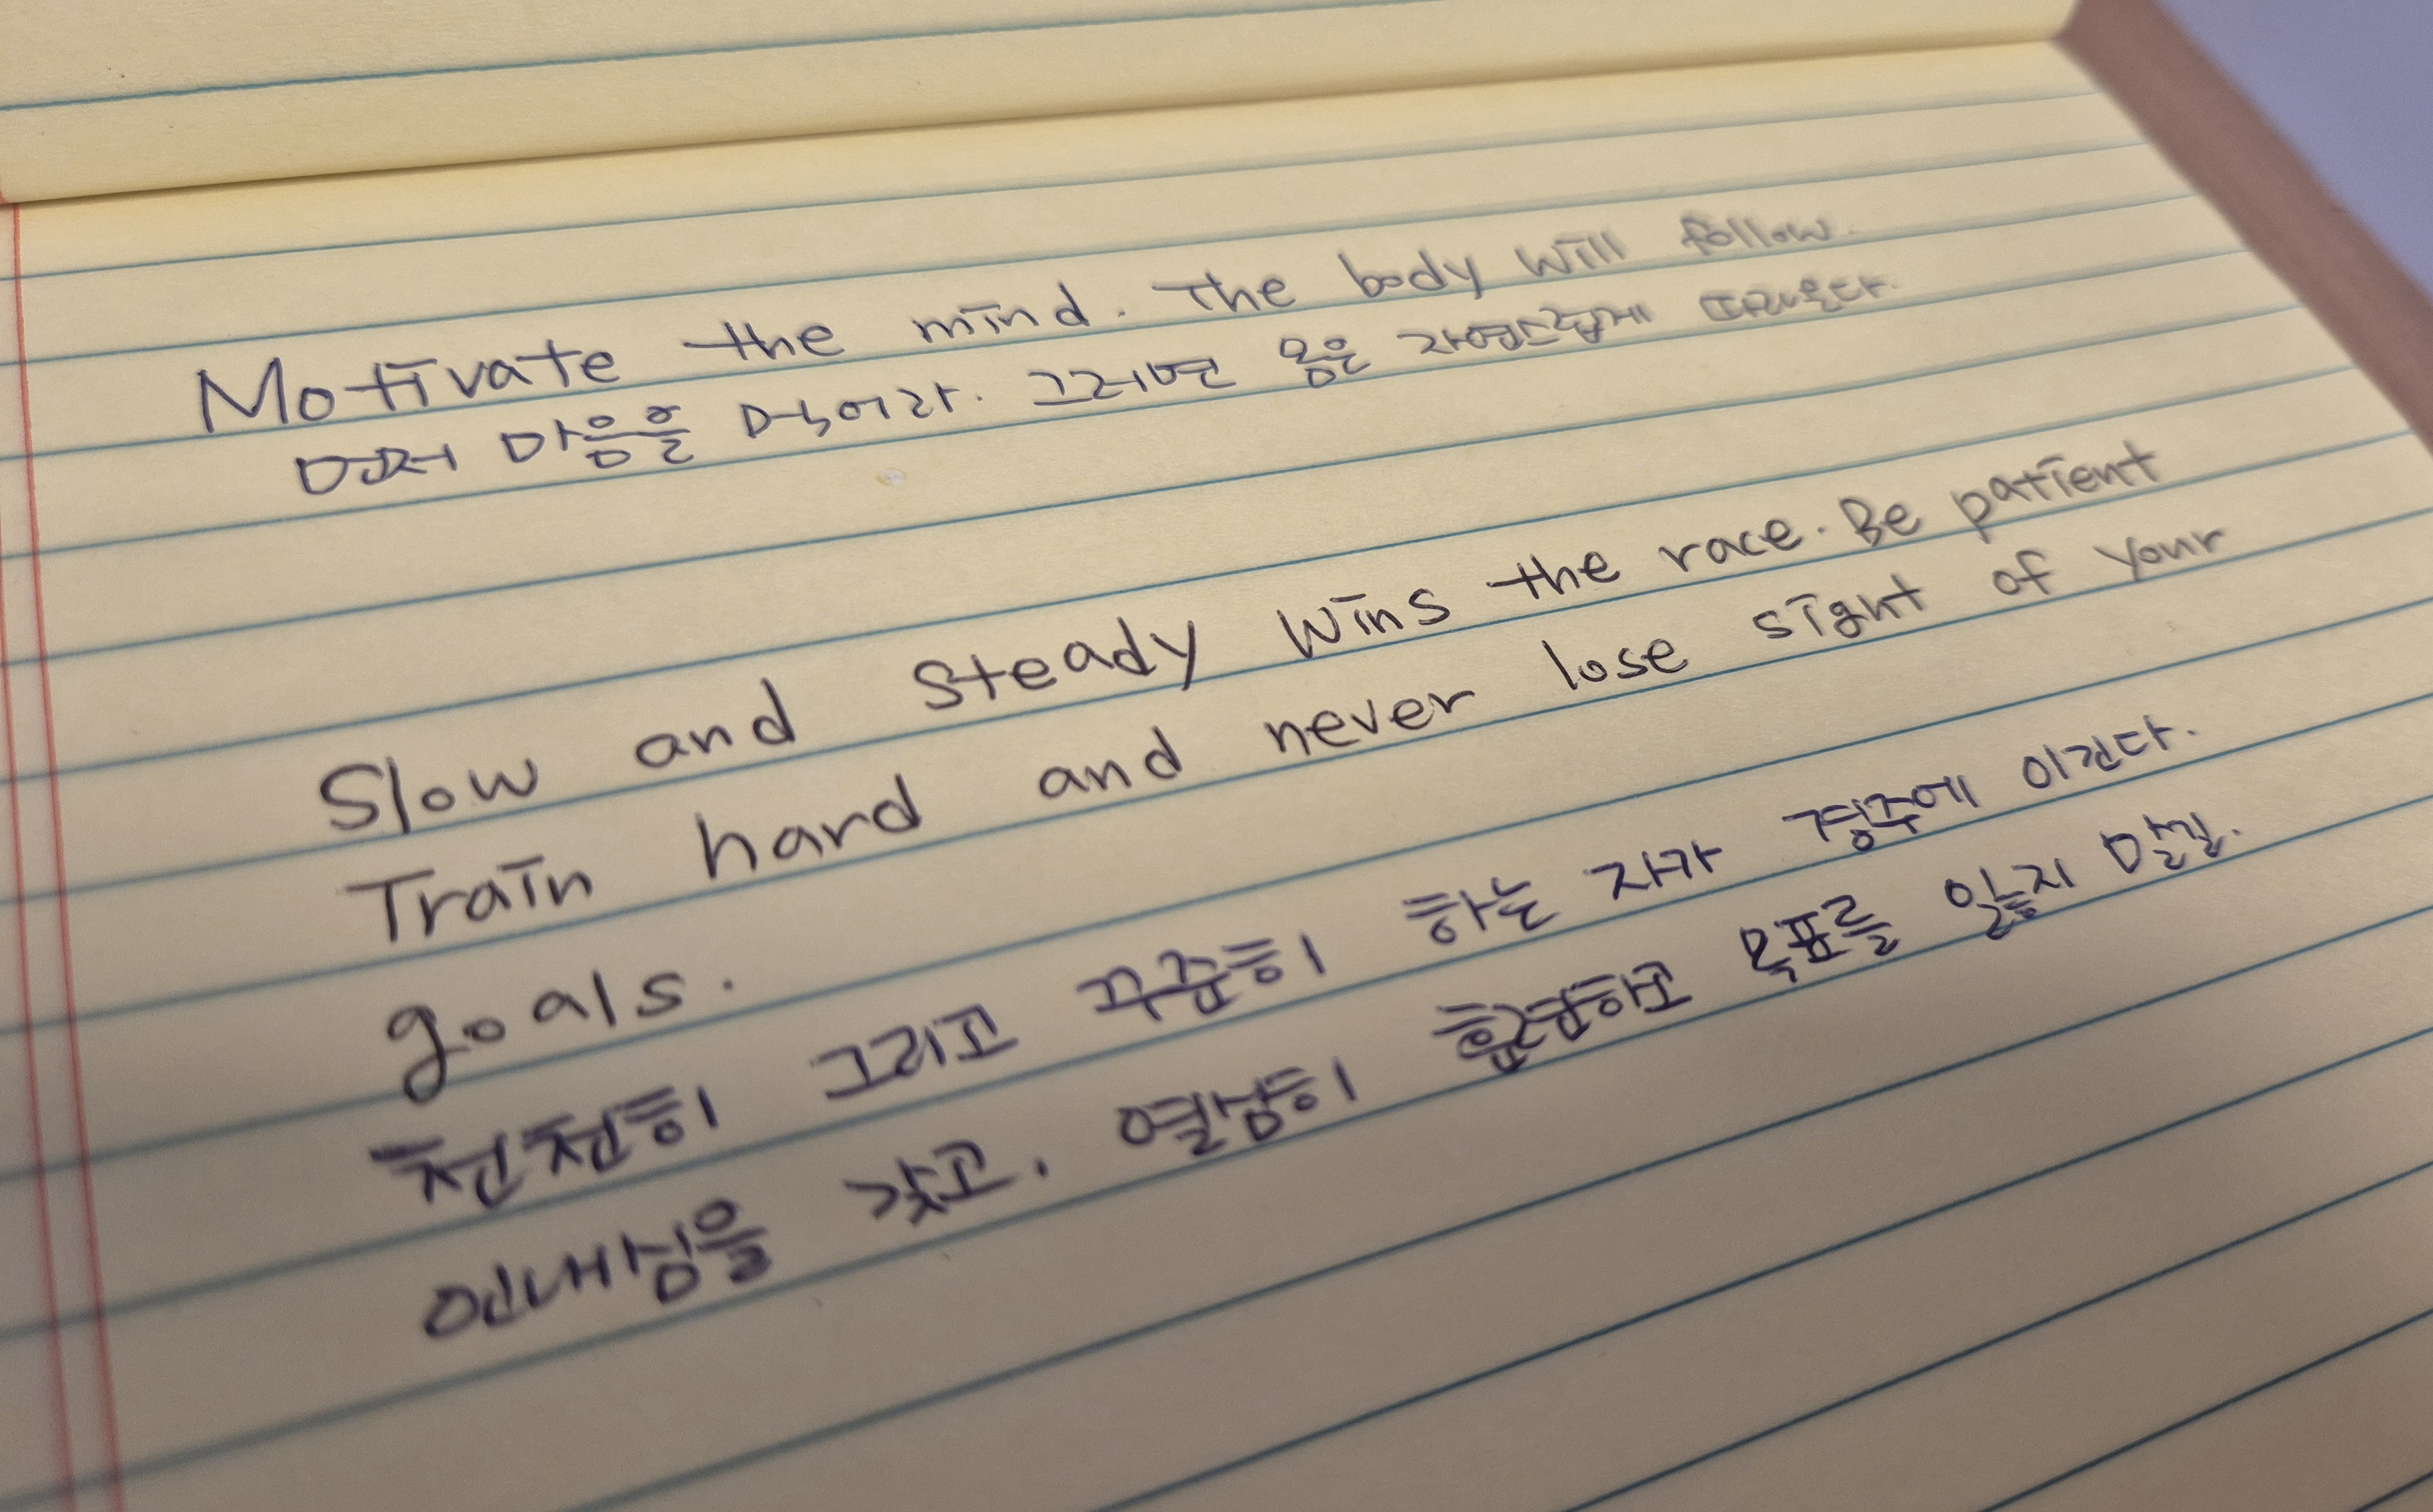 Motivate the mind. The body will follow.
먼저 마음을 먹어라. 그러면 몸은 자연스럽게 따라온다.
Slow and steady wins the race. Be patient
Train hard and never lose sight of your
goals.
천천히 그리고 꾸준히 하는 자가 경주에 이긴다.
인내심을 갖고, 열심히 훈련하고 목표를 잃지 말길.